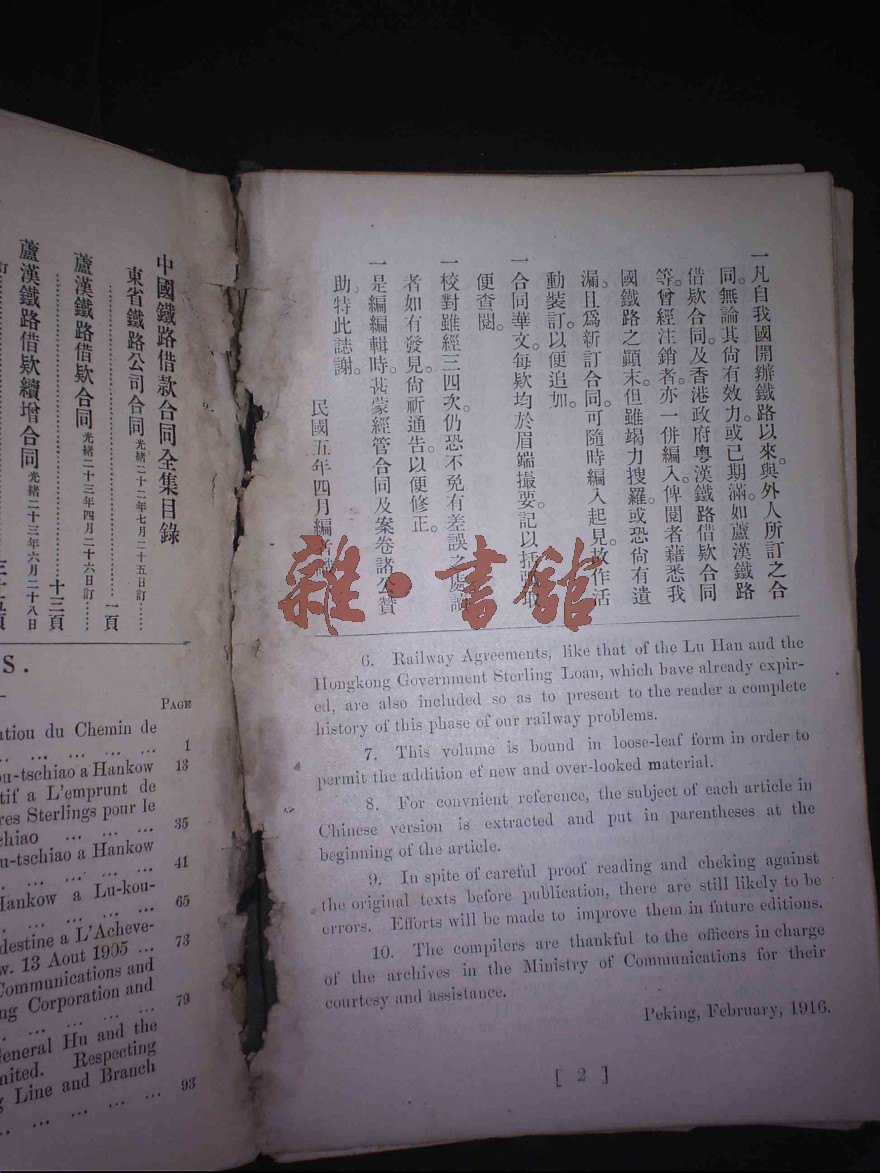 一凡自我國開辦鐵路以來。與外人所訂之合
同。無論其尙有效力。或已期滿。如蘆漢鐵路
借欵合同。及香港政府粤漢鐵路借欵合同
等。曾經注銷者。亦一併編入。俾閱者藉悉我
國鐵路之顚末。但雖竭力搜羅。或恐尙有遺
漏。且爲新訂合同。可隨時編入起見。故作活
動裝訂。以便追加。
一合同華文。每欵均於眉端撮要。記以括
便查閱。
一校對雖經三四次。仍恐不免有差誤之處。讀
者如有發見。尙祈通告。以便修正。
一是編編輯時。甚蒙經管合同及案卷諸公贊
助。特此誌謝。
民國五年四月編者
6. Railway Agreements, like that of the Lu Han and the
Hongkong Government Sterling Loan, which have already expir-
ed, are also included so as to present to the reader a complete
history of this phase of our railway problems.
7. This volume is bound in loose-leaf form in order to
permit the addition of new and over-looked material.
8. For convnient reference, the subject of each article in
Chinese version is extracted and put in parentheses at the
beginning of the article.
9. In spite of careful proof reading and cheking against
the original texts before publication, there are still likely to be
errors. Efforts will be made to improve them in future editions.
10. The compilers are thankful to the officers in charge
of the archives in the Ministry of Communications for their
courtesy and assistance.
Peking, February, 1916.
[ 2 ]
中國鐵路借款合同全集目錄
東省鐵路公司合同 光緒二十二年七月二十五日訂……
……一頁
蘆漢鐵路借欵合同 光緒二十三年四月二十六日訂……
……十三頁
蘆漢鐵路借欵續增合同 光緒二十三年六月二十八日
訂……三十五頁
S.
PAGE
du Chemin de
... 1
ou-tschiao a Hankow 13
tif a L'emprunt de
res Sterlings pour le
chiao ... 35
u-tschiao a Hankow
... 41
Hankow a Lu-kou-
... 65
destine a L'Acheve-
w. 13 Aout 1905 ... 73
Communications and
ng Corporation and
... 79
General Hu and the
mited. Respecting
g Line and Branch
... 93
雜·書館